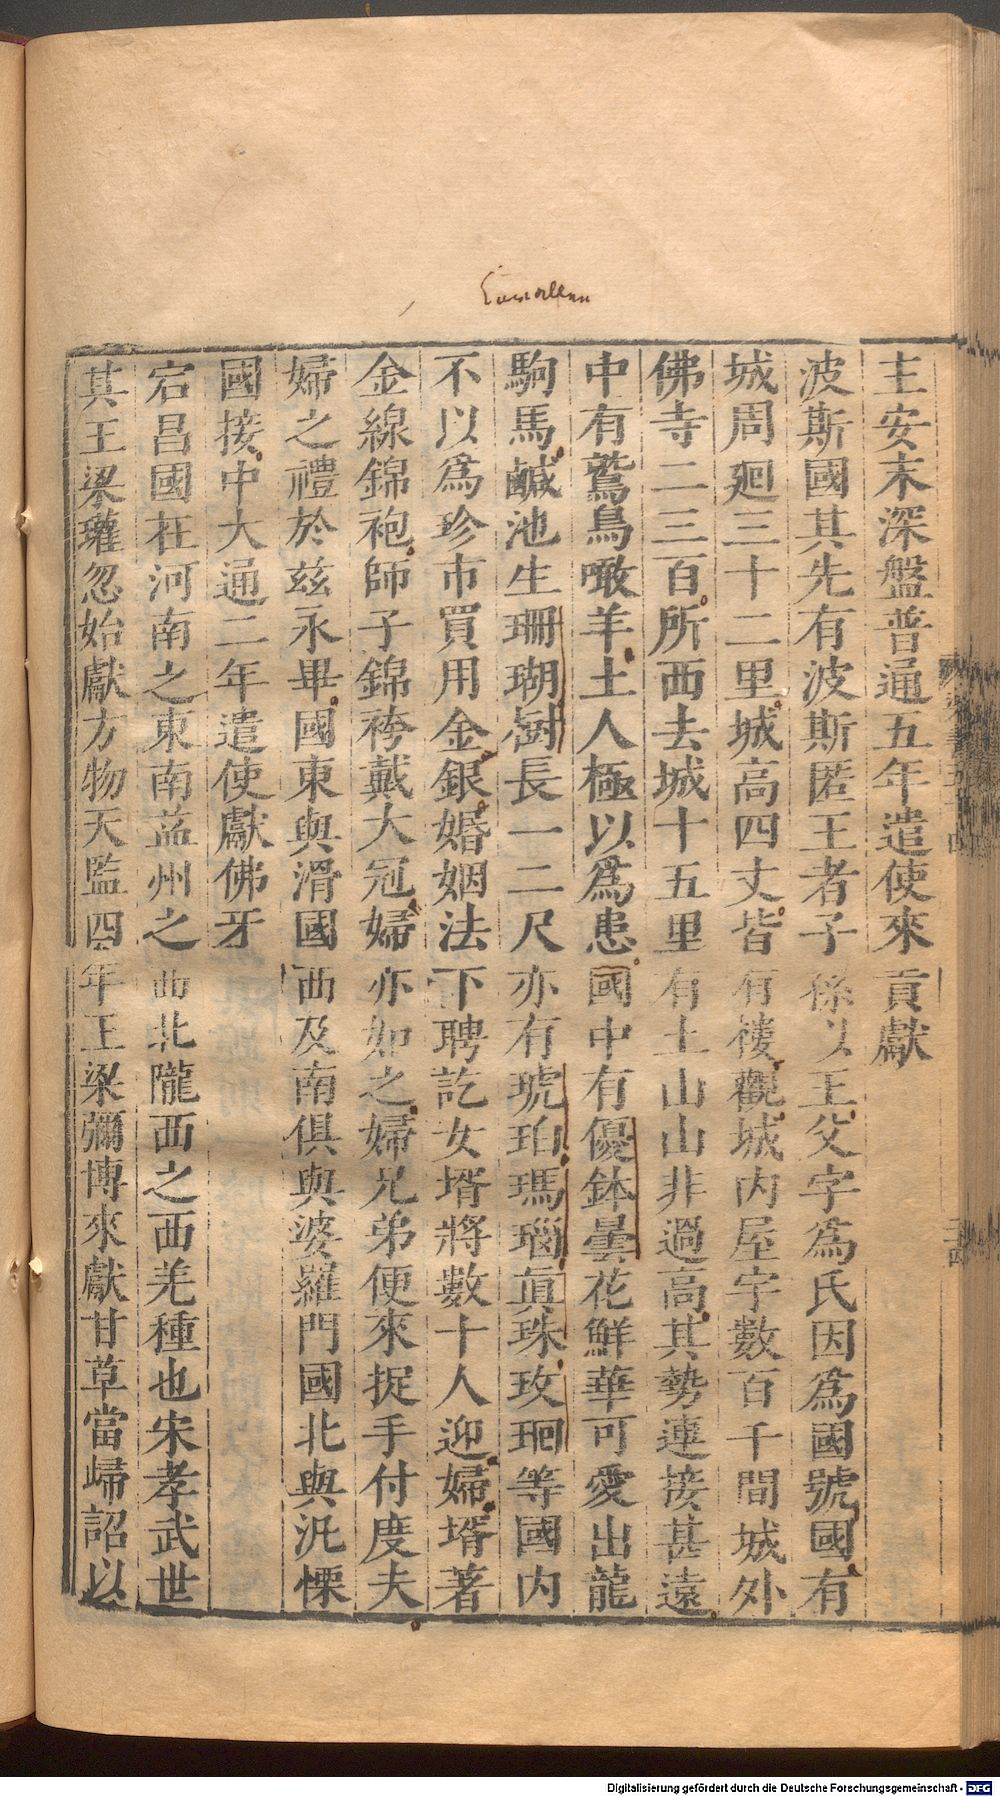 Corallen
主安末深盤普通五年遣使來貢獻
波斯國其先有波斯匿王者子孫以王父字爲氏因爲國號國有
城周廻三十二里城高四丈皆有樓觀城內屋宇數百千間城外
佛寺二三百所西去城十五里有土山山非過高其勢連接甚遠
中有鷲鳥噉羊土人極以爲患國中有優鉢曇花鮮華可愛出龍
駒馬鹹池生珊瑚樹長一二尺亦有琥珀瑪瑙眞珠玫珚等國內
不以爲珍市買用金銀婚姻法下聘訖女壻將數十人迎婦壻著
金線錦袍師子錦袴戴大冠婦亦如之婦兄弟便來捉手付度夫
婦之禮於兹永畢國東與滑國西及南俱與婆羅門國北與汎慄
國接中大通二年遣使獻佛牙
宕昌國在河南之東南益州之西北隴西之西羌種也宋孝武世
其王梁瓘忽始獻方物天監四年王梁彌博來獻甘草當歸詔以
Digitalisierung gefördert durch die Deutsche Forschungsgemeinschaft - DFG